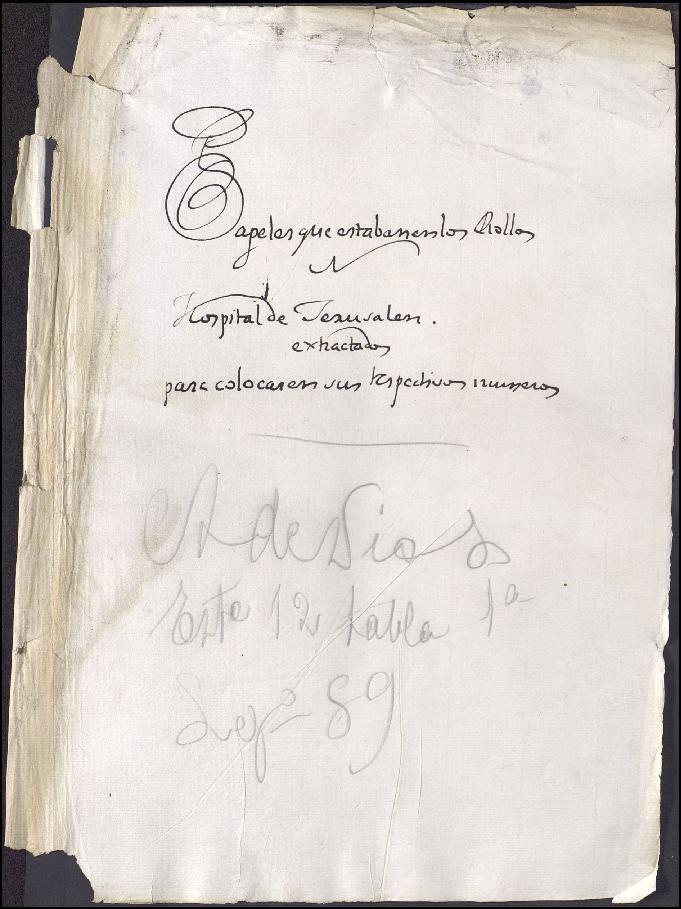 Papeles que estaban en los Rollos
N
Hospital de Jerusalen.
extractados
para colocar en sus respectivos numeros
A de Dios
Estᵉ 12 tabla 1ª
Legº 89